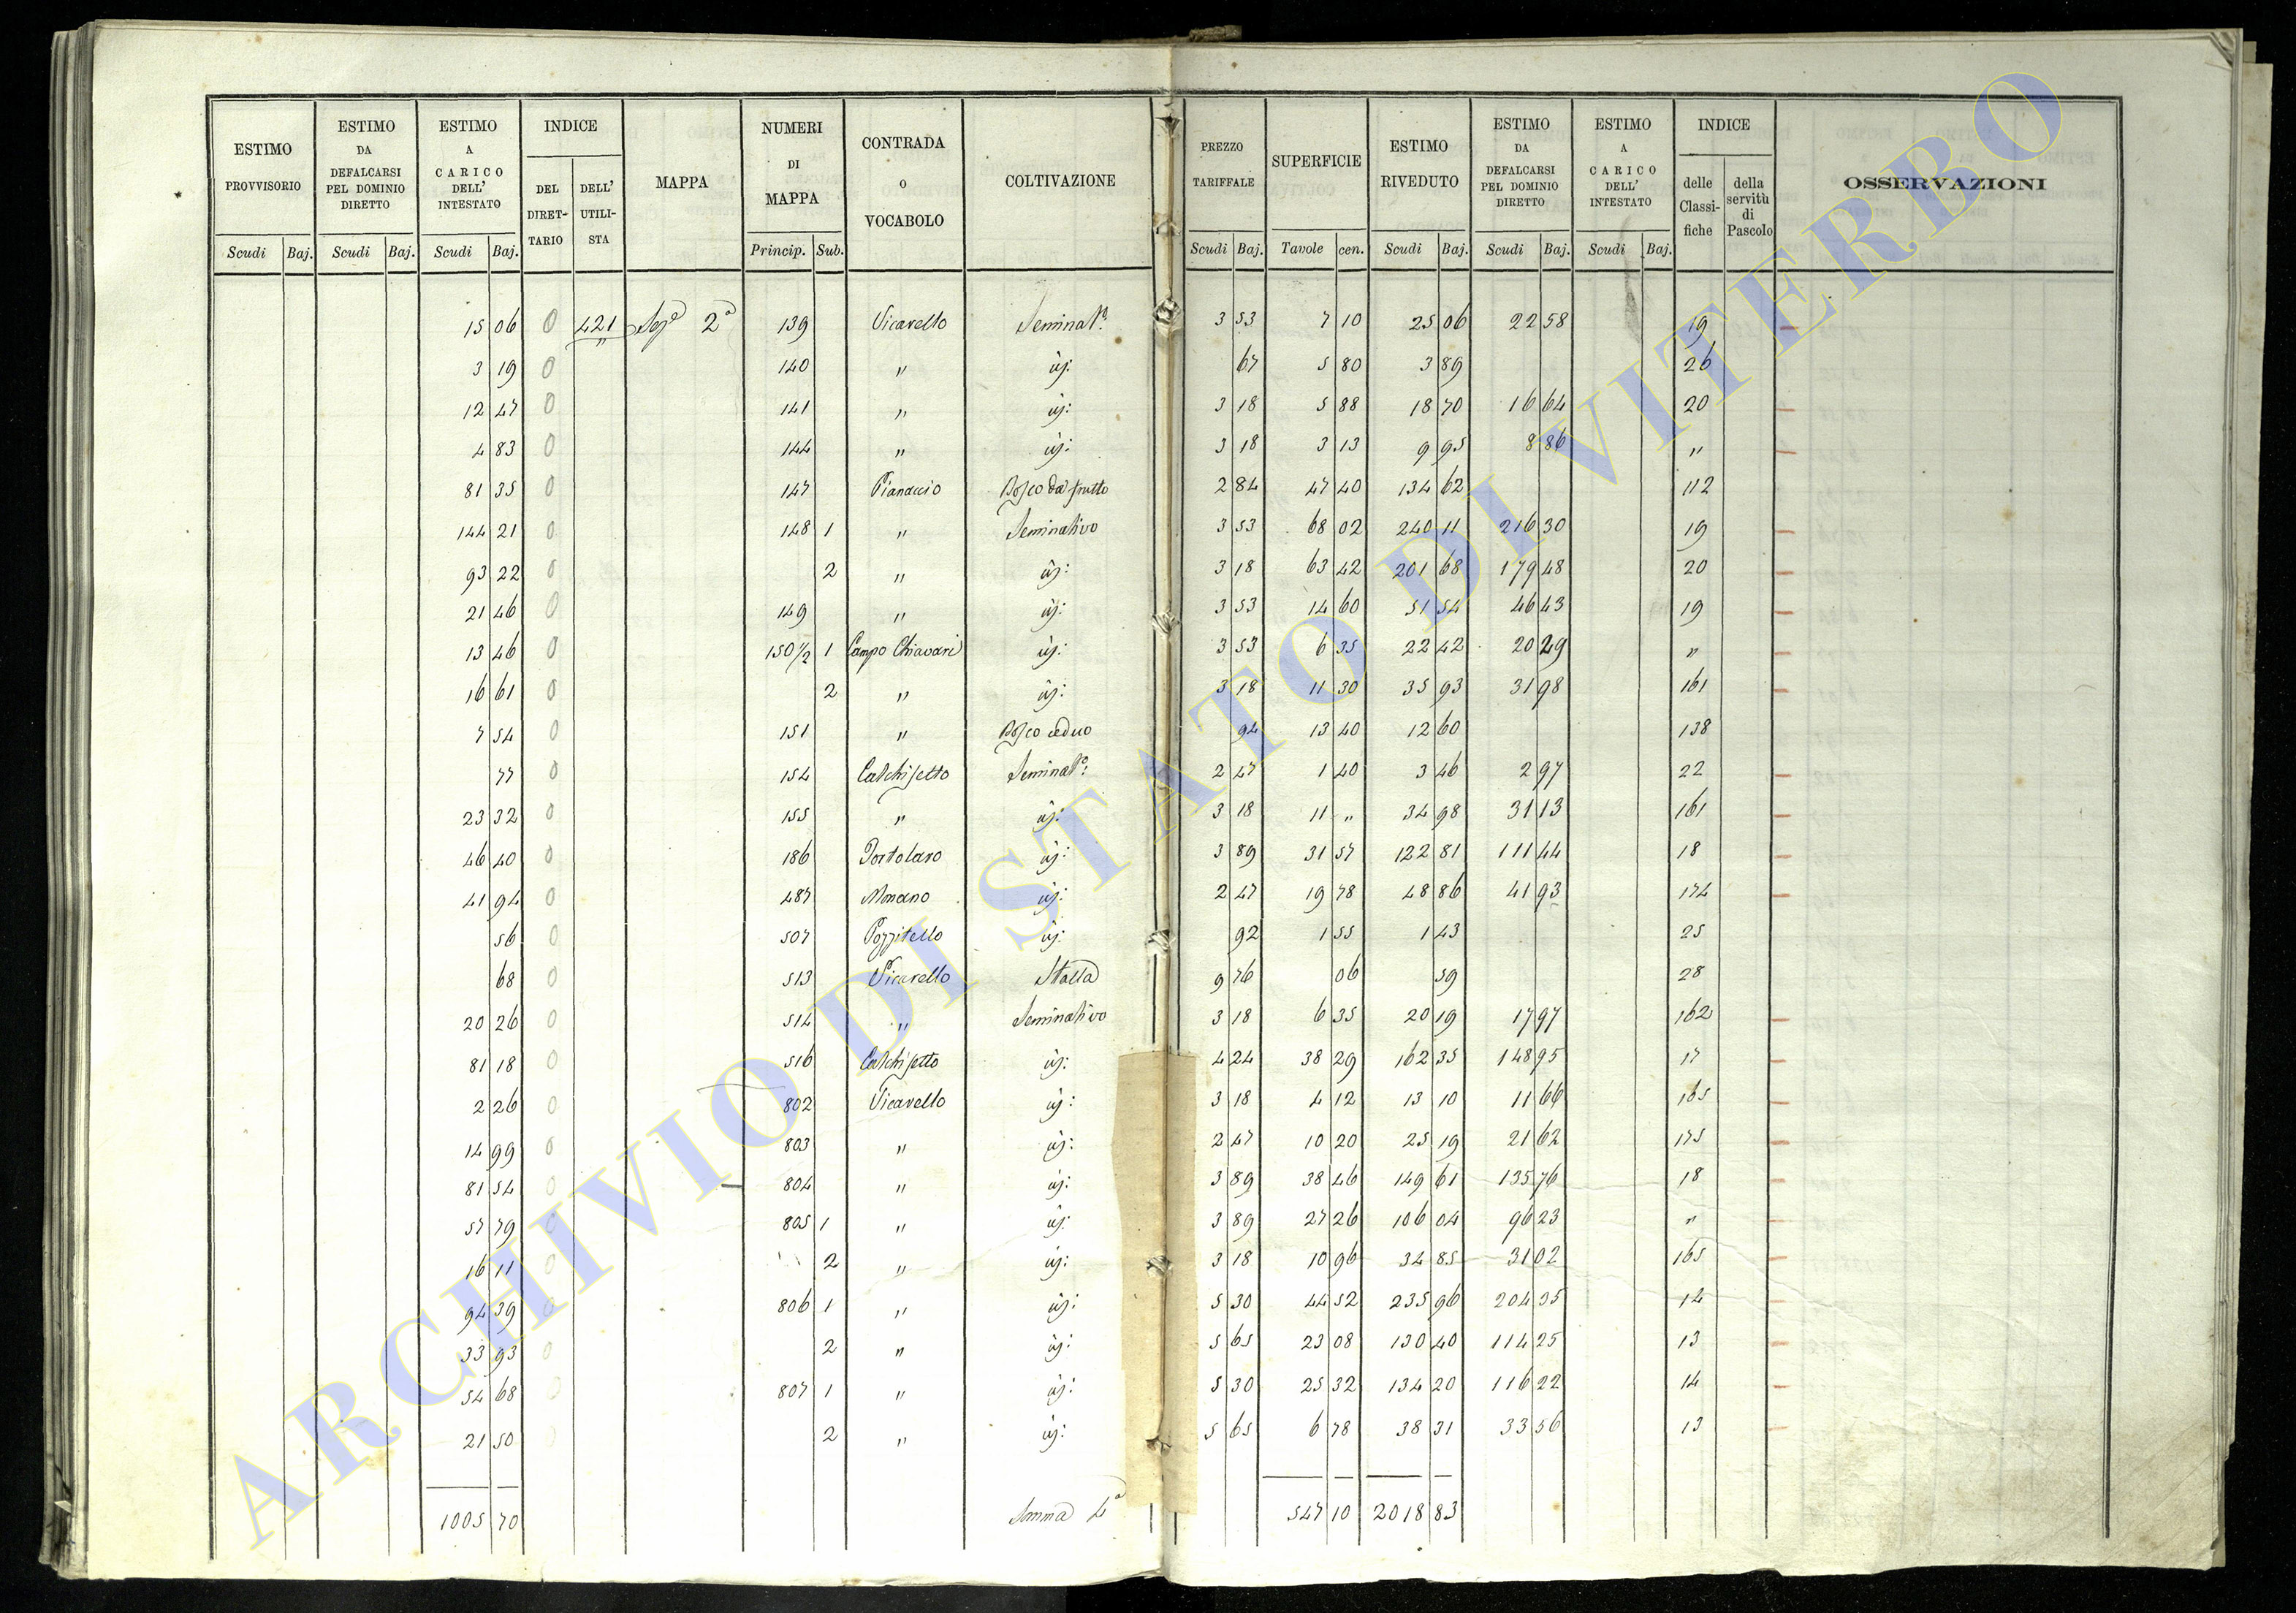 ESTIMO PROVVISORIO | ESTIMO DA DEFALCARSI PEL DOMINIO DIRETTO | ESTIMO A CARICO DELL' INTESTATO | INDICE DEL DIRETTARIO | DELL' UTILISTA | MAPPA | NUMERI DI MAPPA | CONTRADA O VOCABOLO | COLTIVAZIONE | PREZZO TARIFFALE | SUPERFICIE | ESTIMO RIVEDUTO | ESTIMO DA DEFALCARSI PEL DOMINIO DIRETTO | ESTIMO A CARICO DELL' INTESTATO | INDICE delle Classifiche | della servitù di Pascolo | OSSERVAZIONI
Scudi Baj. Scudi Baj. Scudi Baj. Princip. Sub. Scudi Baj. Tavole cen. Scudi Baj. Scudi Baj. Scudi Baj.
15 06 0 421 Sezᵉ 2ª 139 Vicarello Seminatº 3 53 7 10 25 06 22 58 19
3 19 0 " 140 " id: 67 5 80 3 89 26
12 47 0 141 " id: 3 18 5 88 18 70 16 64 20
4 83 0 144 " id: 3 18 3 13 9 95 8 86 "
81 35 0 147 Pianaccio Bosco da frutto 2 84 47 40 134 62 112
144 21 0 148 1 " Seminativo 3 53 68 02 240 11 216 30 19
93 22 0 2 " id: 3 18 63 42 201 68 179 48 20
21 46 0 149 " id: 3 53 14 60 51 54 46 43 19
13 46 0 150 1/2 1 Campo Chiavari id: 3 53 6 35 22 42 20 29 "
16 61 0 2 " id: 3 18 11 30 35 93 31 98 161
7 54 0 151 " Bosco ceduo 94 13 40 12 60 138
77 0 154 Calchisetto Seminatº: 2 47 1 40 3 46 2 97 22
23 32 0 155 " id: 3 18 11 " 34 98 31 13 161
46 40 0 186 Portolaro id: 3 89 31 57 122 81 111 44 18
41 94 0 487 Monano id: 2 47 19 78 48 86 41 93 174
56 0 507 Pozzitello id: 92 1 55 1 43 25
68 0 513 Vicarello Stalla 9 76 06 59 28
20 26 0 514 " Seminativo 3 18 6 35 20 19 17 97 162
81 18 0 516 Calchisetto id: 4 24 38 29 162 35 148 95 17
2 26 0 802 Vicarello id: 3 18 4 12 13 10 11 66 165
14 99 0 803 " id: 2 47 10 20 25 19 21 62 175
81 54 0 804 " id: 3 89 38 46 149 61 135 76 18
57 79 0 805 1 " id: 3 89 27 26 106 04 96 23 "
16 11 0 2 " id: 3 18 10 96 34 85 31 02 165
94 39 0 806 1 " id: 5 30 44 52 235 96 204 35 14
33 93 0 2 " id: 5 65 23 08 130 40 114 25 13
54 68 0 807 1 " id: 5 30 25 32 134 20 116 22 14
21 50 0 2 " id: 5 65 6 78 38 31 33 56 13
1005 70 Somma 4ª 547 10 2018 83
ARCHIVIO DI STATO DI VITERBO